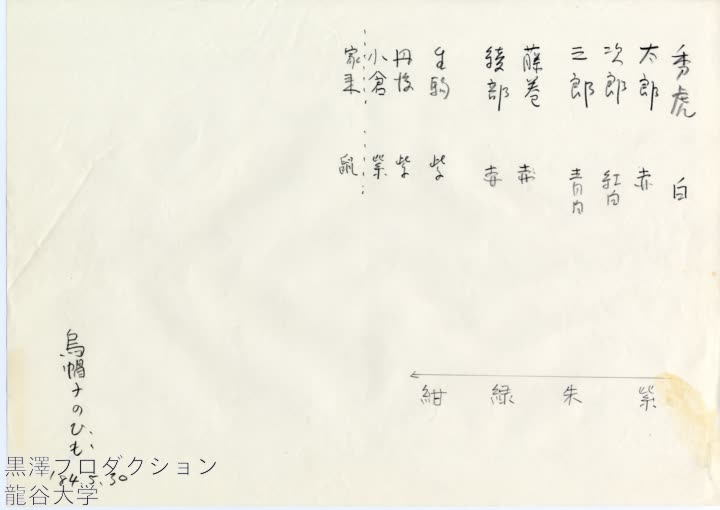 秀虎 白
太郎 赤
次郎 紅白
三郎 青白
藤巻 赤
綾部 赤
生駒 紫
丹後 紫
小倉 紫
家来 鼠
紫
朱
緑
紺
烏帽子のひも
'84.5.30
黒澤プロダクション
龍谷大学